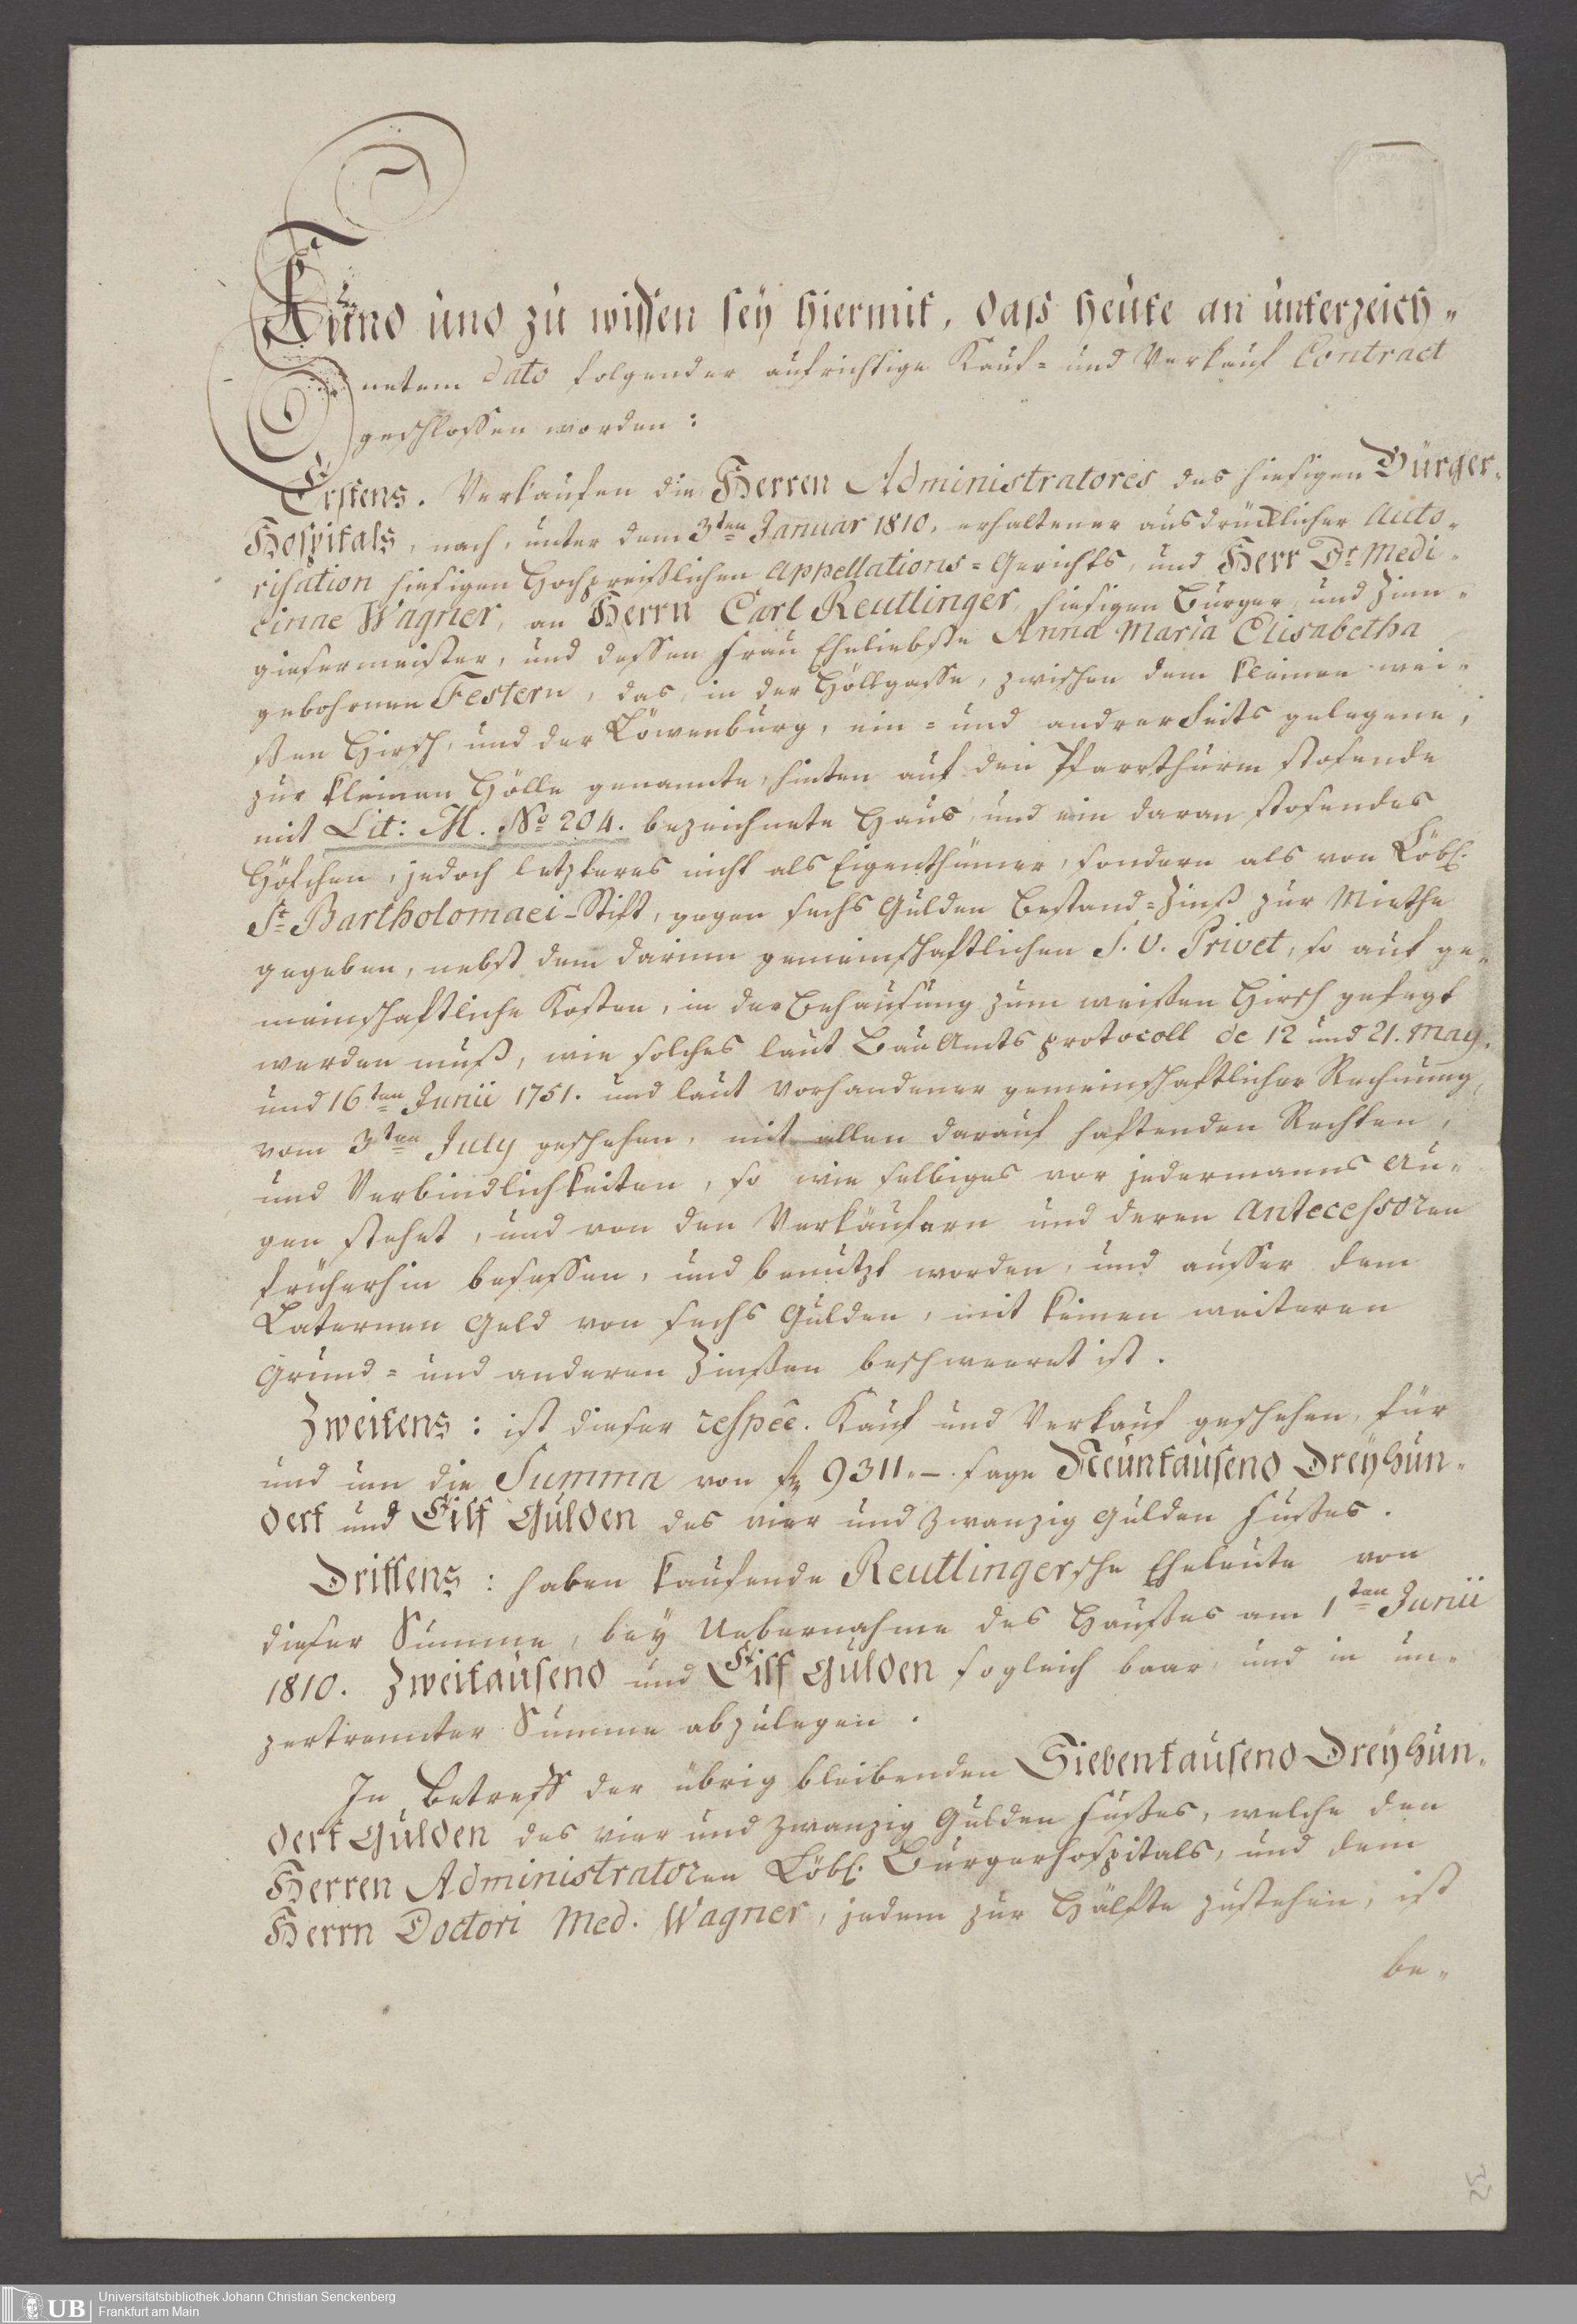 Kund und zu wissen sey hiermit, daß heute an unterzeich-
netem dato folgender aufrichtige Kauf- und Verkauf Contract
geschlossen worden:
Erstens. Verkaufen die Herren Administratores des hiesigen Bürger-
Hospitals, nach, unter dem 3ten Januar 1810. erhaltener ausdrücklicher Auto-
risation hiesigen Hochpreißlichen Appellations-Gerichts, und Herr Dr. Medi-
cinae Wagner, an Herrn Carl Reutlinger, hiesigen Burger, und Zinn-
giesermeister, und dessen Frau Eheliebste Anna Maria Elisabetha
gebohrnen Festern, das, in der Höllgasse, zwischen dem kleinen wei-
ßen Hirsch, und der Löwenburg, ein- und andrerseits gelegene,
zur kleinen Hölle genannte, hinten auf den Pfarrthurm stosende
mit Lit: M. No 204. bezeichnete Haus, und ein daran stosendes
Höfchen, jedoch letzteres nicht als Eigenthümer, sondern als von Löbl.
St. Bartholomaei-Stift, gegen sechs Gulden Bestand-Zinß zur Miethe
gegeben, nebst dem darinn gemeinschaftlichen S. V. Privet, so auf ge-
meinschaftliche Kosten, in der Behausung zum weißen Hirsch gefegt
werden muß, wie solches laut Bau Amts protocoll de 12 und 21. May.
und 16ten Junii 1751. und laut vorhandener gemeinschaftlicher Rechnung,
vom 3ten July geschehen, mit allen darauf haftenden Rechten,
und Verbindlichkeiten, so wie selbiges vor jedermanns Au-
gen stehet, und von den Verkäufern und deren Antecessoren
früherhin besessen, und benutzt worden, und ausser dem
Laternen Geld von sechs Gulden, mit keinen weiteren
Grund- und anderen Zinßen beschweeret ist.
Zweitens: ist dieser respec. Kauf und Verkauf geschehen, für
und um die Summa von fl 9311.–. sage Neuntausend Dreyhun-
dert und Eilf Gulden des vier und zwanzig Gulden Fußes.
Drittens: haben kaufende Reutlingersche Eheleute von
dieser Summe, bey Uebernahme des Haußes am 1ten Junii
1810. Zweitausend und Eilf Gulden sogleich baar, und in un-
zertrennter Summe abzulegen.
In Betreff der übrig bleibenden Siebentausend Dreyhun-
dert Gulden des vier und zwanzig Gulden Fußes, welche den
Herren Administratoren Löbl. Burgerhospitals, und dem
Herrn Doctori Med. Wagner, jedem zur Hälfte zustehen, ist
be-
Universitätsbibliothek Johann Christian Senckenberg
Frankfurt am Main
UB